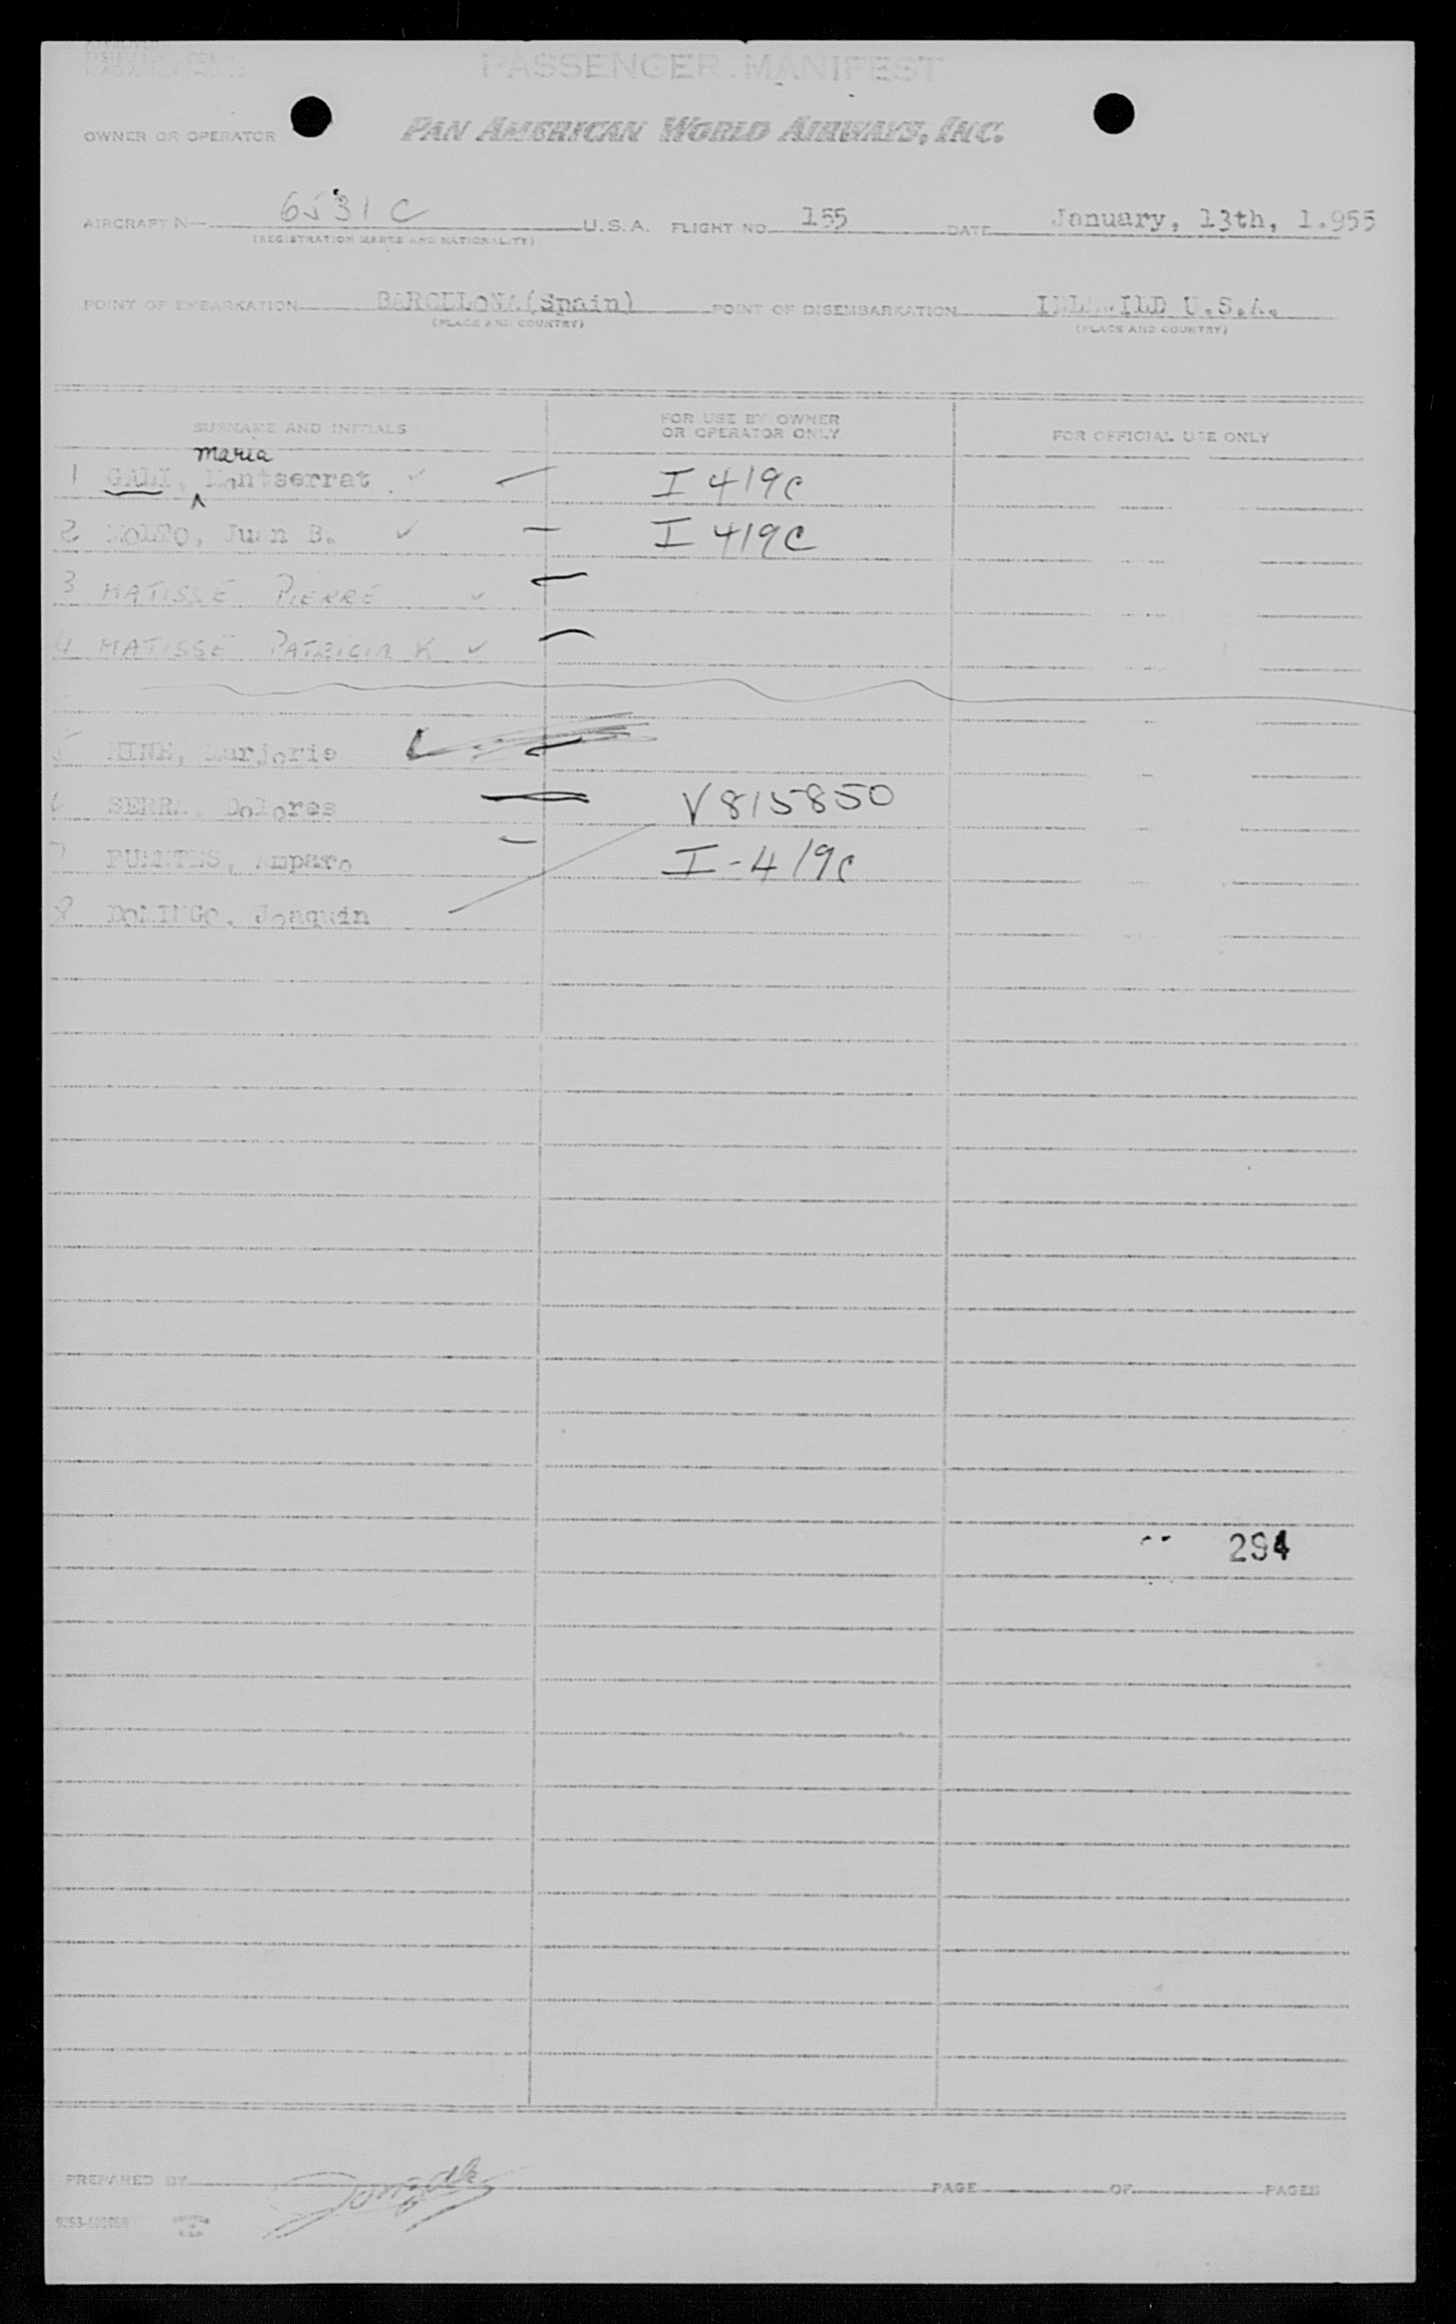 PASSENGER MANIFEST
OWNER OR OPERATOR PAN AMERICAN WORLD AIRWAYS, INC.
AIRCRAFT N— 6531C U.S.A. FLIGHT NO. 155 DATE January, 13th, 1.955
(REGISTRATION MARKS AND NATIONALITY)
POINT OF EMBARKATION BARCELONA(Spain) POINT OF DISEMBARKATION IDLEWILD U.S.A.
(PLACE AND COUNTRY) (PLACE AND COUNTRY)
SURNAME AND INITIALS FOR USE BY OWNER OR OPERATOR ONLY FOR OFFICIAL USE ONLY
maria
1 GALI, Montserrat ✓ — I 419c
2 Juan B. ✓ — I 419c
3 MATISSE PIERRE ✓ —
4 MATISSE PATRICIA K ✓ —
5 Marjorie
6 SERRA, Dolores V815850
7 FUENTES, Amparo — I-419c
8 DOMINGO, Joaquin
294
PREPARED BY PAGE OF PAGES